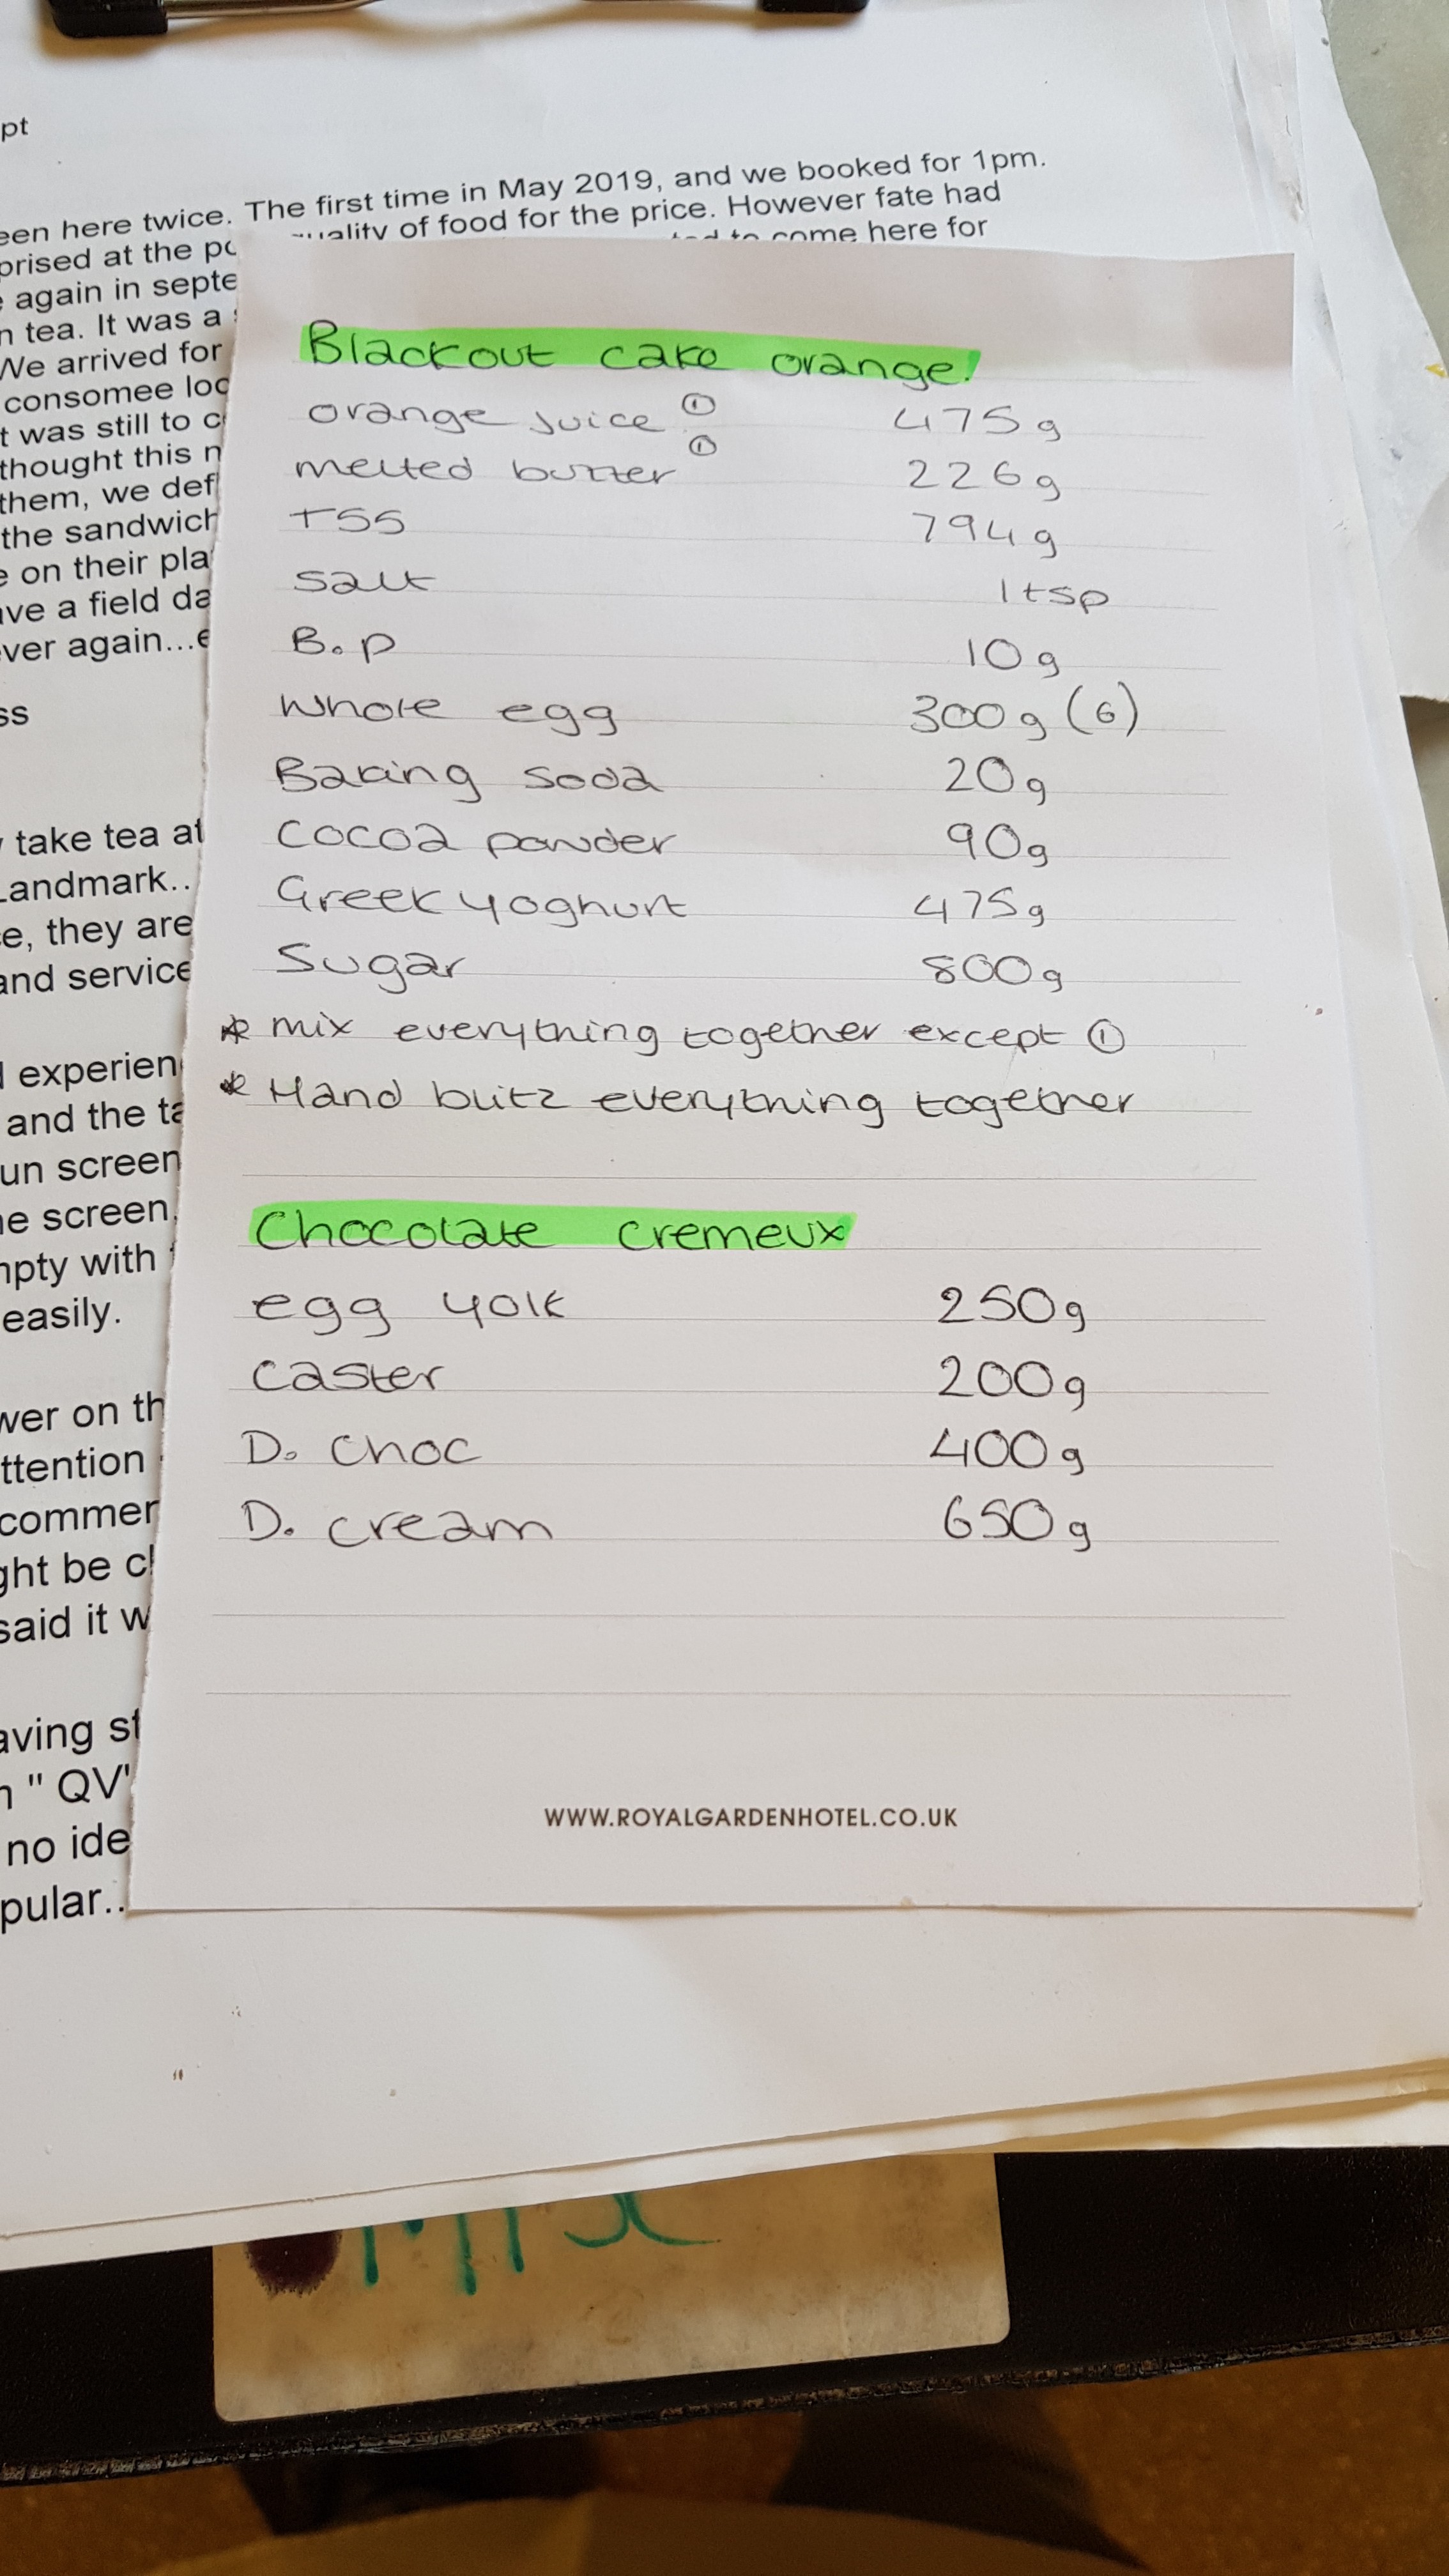 pt
een here twice. The first time in May 2019, and we booked for 1pm.
prised at the po
quality of food for the price. However fate had
again in septe
to come here for
n tea. It was a
We arrived for
consomee loo
t was still to c
thought this n
them, we def
the sandwich
e on their pla
ave a field da
ver again...e
ss
take tea at
Landmark..
e, they are
and service
d experien
and the ta
un screen
e screen,
mpty with
easily.
wer on th
ttention
commer
ght be cl
said it w
aving st
n " QV"
no ide
pular..
Blackout cake orange!
orange juice ① 475g
melted butter ① 226g
TSS 794g
Salt 1tsp
B.p 10g
Whole egg 300g (6)
Baking soda 20g
Cocoa powder 90g
Greek yoghurt 475g
Sugar 800g
* mix everything together except ①
* Hand blitz everything together
Chocolate cremeux
egg yolk 250g
caster 200g
D. choc 400g
D. cream 650g
WWW.ROYALGARDENHOTEL.CO.UK